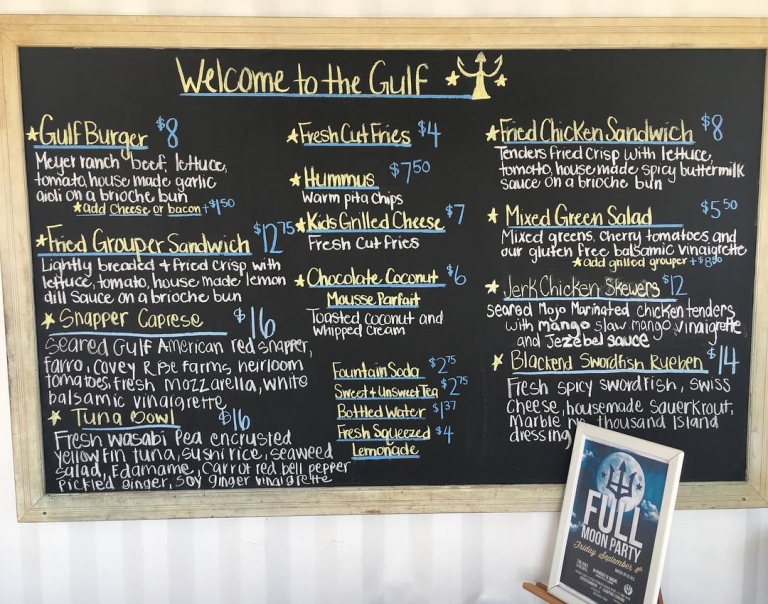 Welcome to the Gulf
Gulf Burger $8
Meyer ranch beef, lettuce,
tomato, house made garlic
aioli on a brioche bun
add cheese or bacon +$1.50
Fried Grouper Sandwich $12.75
Lightly breaded + fried crisp with
lettuce, tomato, house made lemon
dill sauce on a brioche bun
Snapper Caprese $16
Seared Gulf American red snapper,
farro, Covey Rise Farms heirloom
tomatoes, fresh mozzarella, white
balsamic vinaigrette
Tuna Bowl $16
Fresh wasabi pea encrusted
yellow fin tuna, sushi rice, seaweed
salad, Edamame, carrot red bell pepper
pickled ginger, soy ginger vinaigrette
Fresh Cut Fries $4
Hummus $7.50
Warm pita chips
Kids Grilled Cheese $7
Fresh cut fries
Chocolate Coconut $6
Mousse Parfait
Toasted coconut and
whipped cream
Fountain Soda $2.75
Sweet + UnSweet Tea $2.75
Bottled Water $1.37
Fresh Squeezed $4
Lemonade
Fried Chicken Sandwich $8
Tenders fried crisp with lettuce,
tomato, house made spicy buttermilk
sauce on a brioche bun
Mixed Green Salad $5.50
Mixed greens, cherry tomatoes and
our gluten free balsamic vinaigrette
add grilled grouper +$8.50
Jerk Chicken Skewers $12
seared Mojo Marinated chicken tenders
with mango slaw mango vinaigrette
and Jezebel sauce
Blackend Swordfish Rueben $14
Fresh spicy swordfish, swiss
cheese, housemade sauerkrout,
Marble thousand island
dressing
FULL
MOON PARTY
Friday September 8th